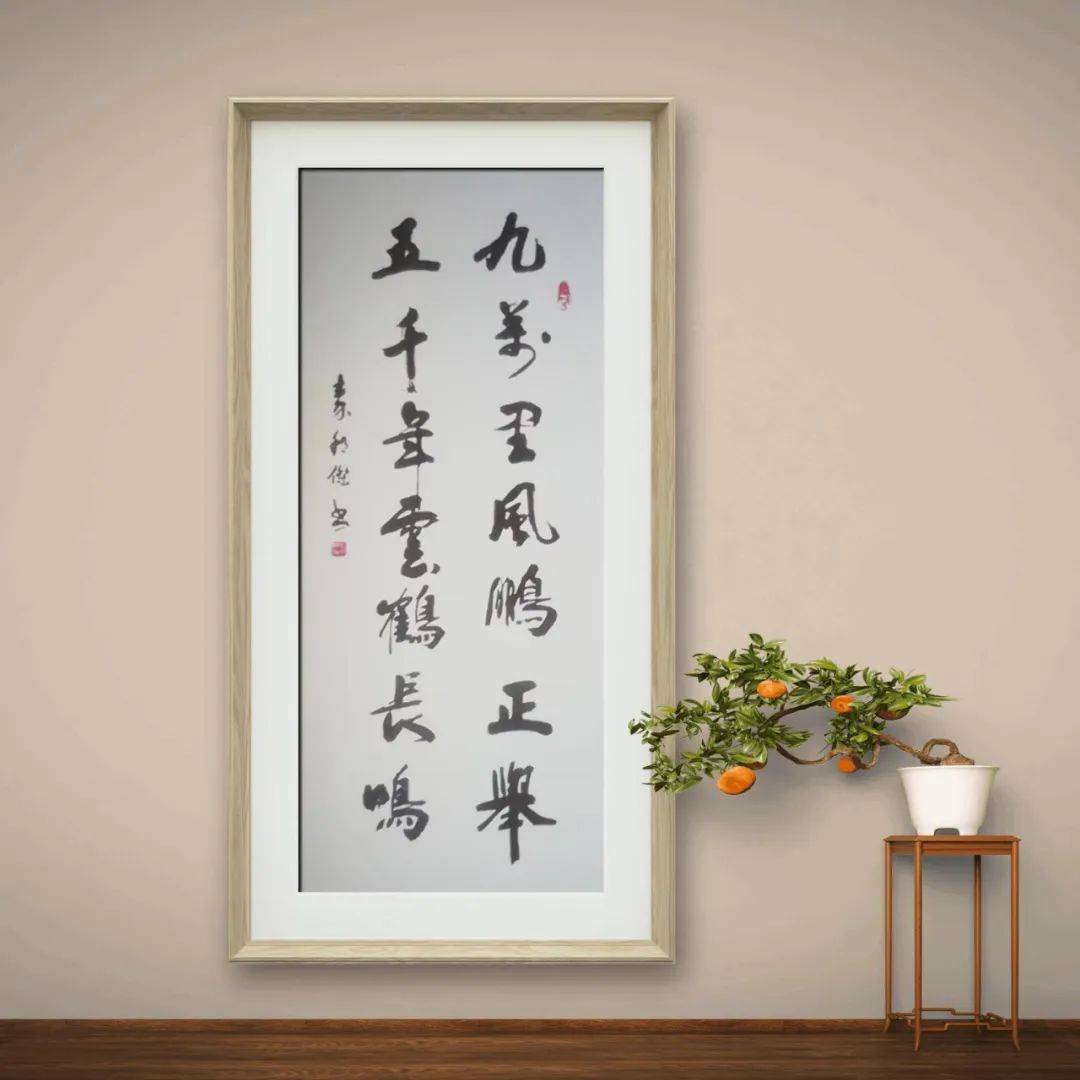 九萬里風鵬正舉
五千年雲鶴長鳴
書